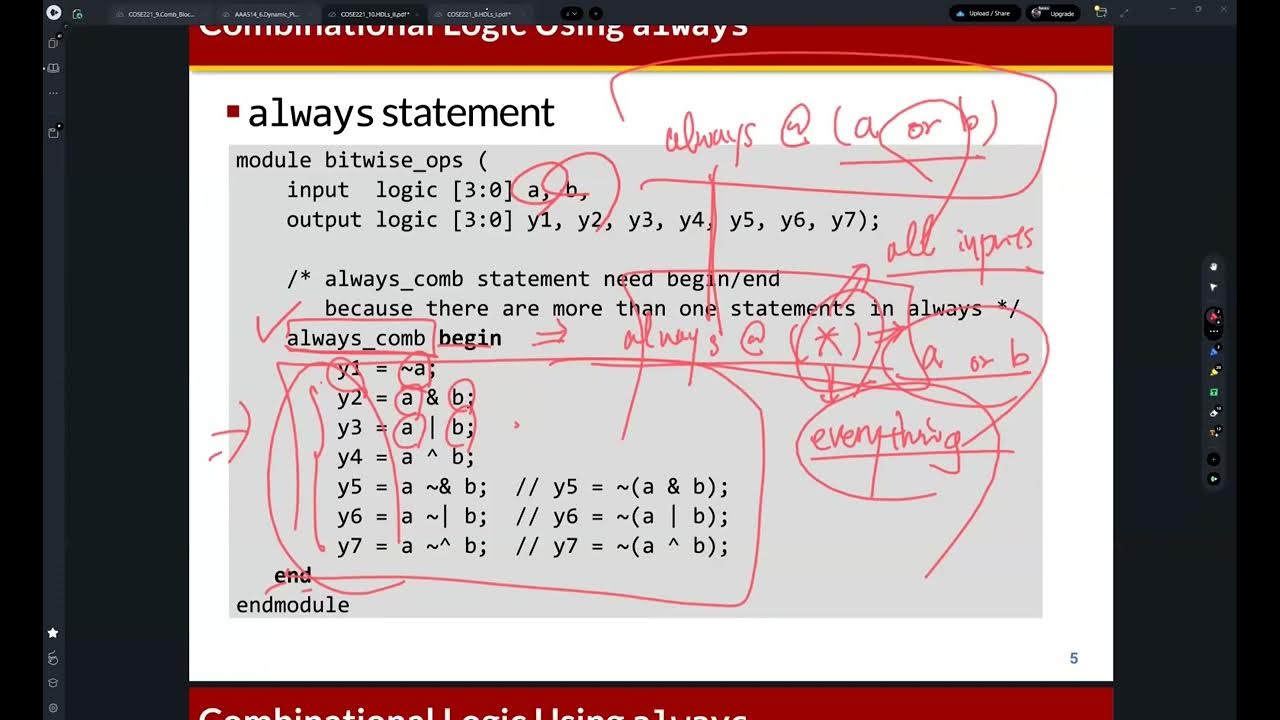 COSE221_9.Comb_Bloc...
AAA514_6.Dynamic_Pi...
COSE221_10.HDLs_II.pdf*
COSE221_8.HDLs_I.pdf*
Upload / Share
Upgrade
Combinational Logic Using always
always statement
always @ (a or b)
module bitwise_ops (
input logic [3:0] a, b,
output logic [3:0] y1, y2, y3, y4, y5, y6, y7);
all inputs
/* always_comb statement need begin/end
because there are more than one statements in always */
always_comb begin ⇒ always @ (*) ⇒ a or b
y1 = ~a;
y2 = a & b;
y3 = a | b;
everything
y4 = a ^ b;
y5 = a ~& b; // y5 = ~(a & b);
y6 = a ~| b; // y6 = ~(a | b);
y7 = a ~^ b; // y7 = ~(a ^ b);
end
endmodule
5
Combinational Logic Using always